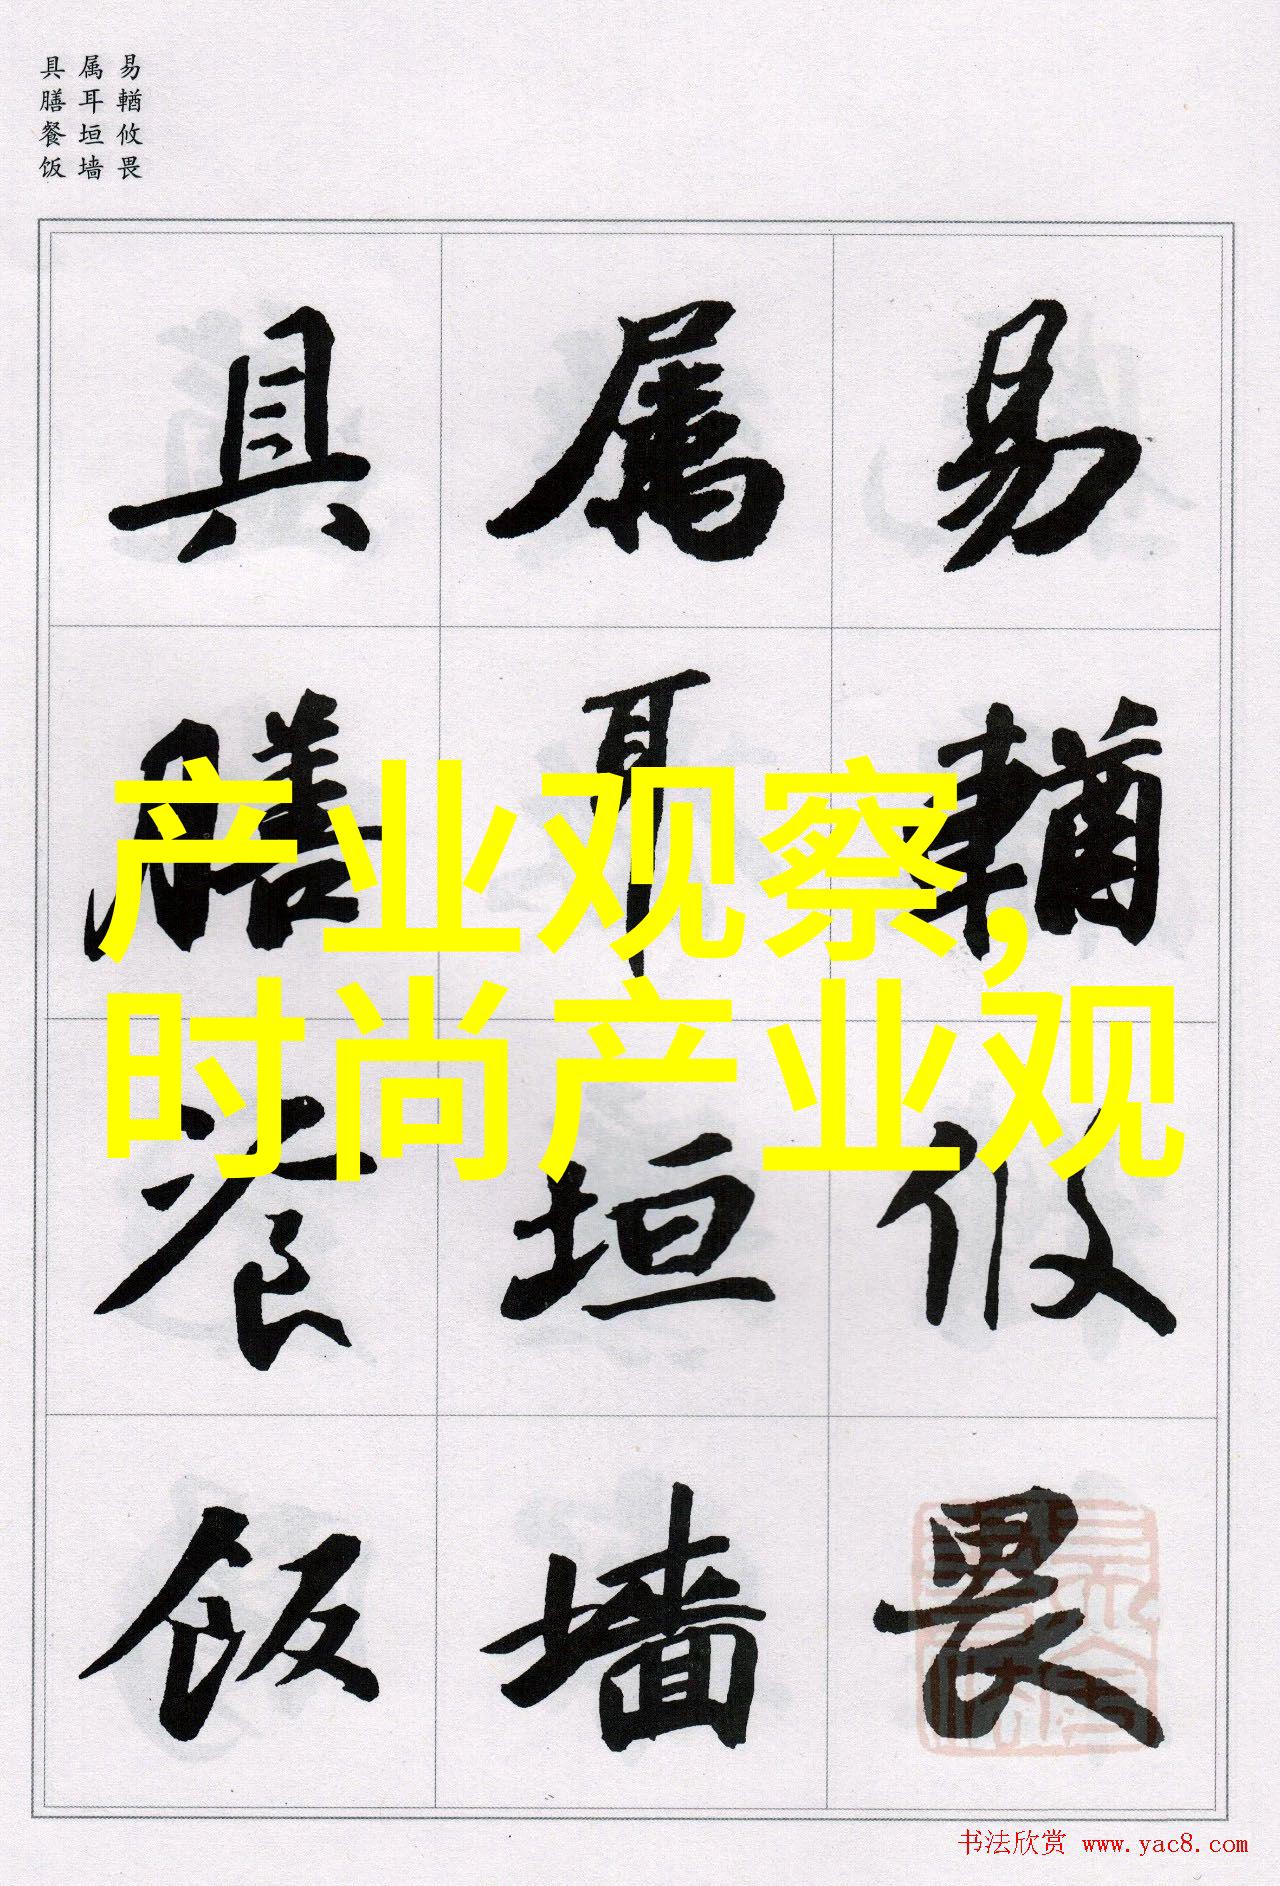 易輶攸畏
属耳垣墙
具膳餐饭
易輶攸畏
属耳垣墙
具膳餐饭
产业观察,
时尚产业观
书法欣赏 www.yac8.com